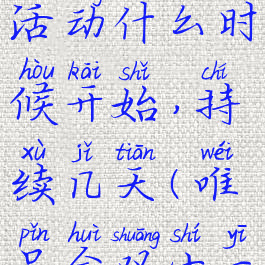 活动什么时
hòu kāi shǐ chí
候开始，持
xù jǐ tiān wéi
续几天（唯
pǐn huì shuāng shí yī
品会双十一